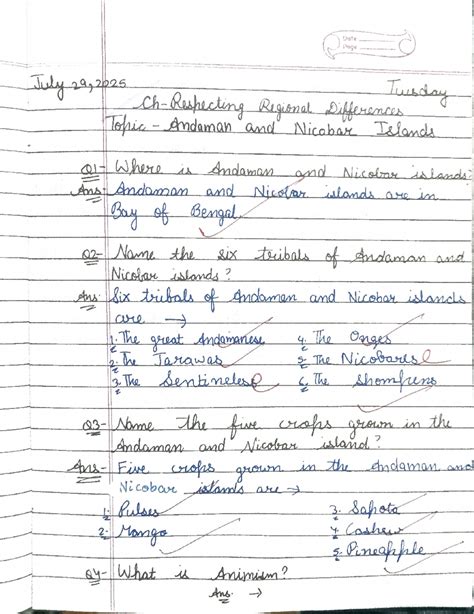 Date
Page
July 29, 2025 Tuesday
Ch-Respecting Regional Differences
Topic - Andaman and Nicobar Islands
Q1- Where is Andaman and Nicobar islands?
Ans- Andaman and Nicobar islands are in
Bay of Bengal.
Q2- Name the six tribals of Andaman and
Nicobar islands?
Ans. Six tribals of Andaman and Nicobar islands
are →
1. The great Andamanese 4. The Onges
2. The Jarawas 5. The Nicobarese
3. The Sentinelese 6. The Shompens
Q3- Name the five crops grown in the
Andaman and Nicobar island?
Ans- Five crops grown in the Andaman and
Nicobar islands are →
1. Pulses 3. Sapota
2. Mango 4. Cashew
5. Pineapple
Q4- What is Animism?
Ans. →